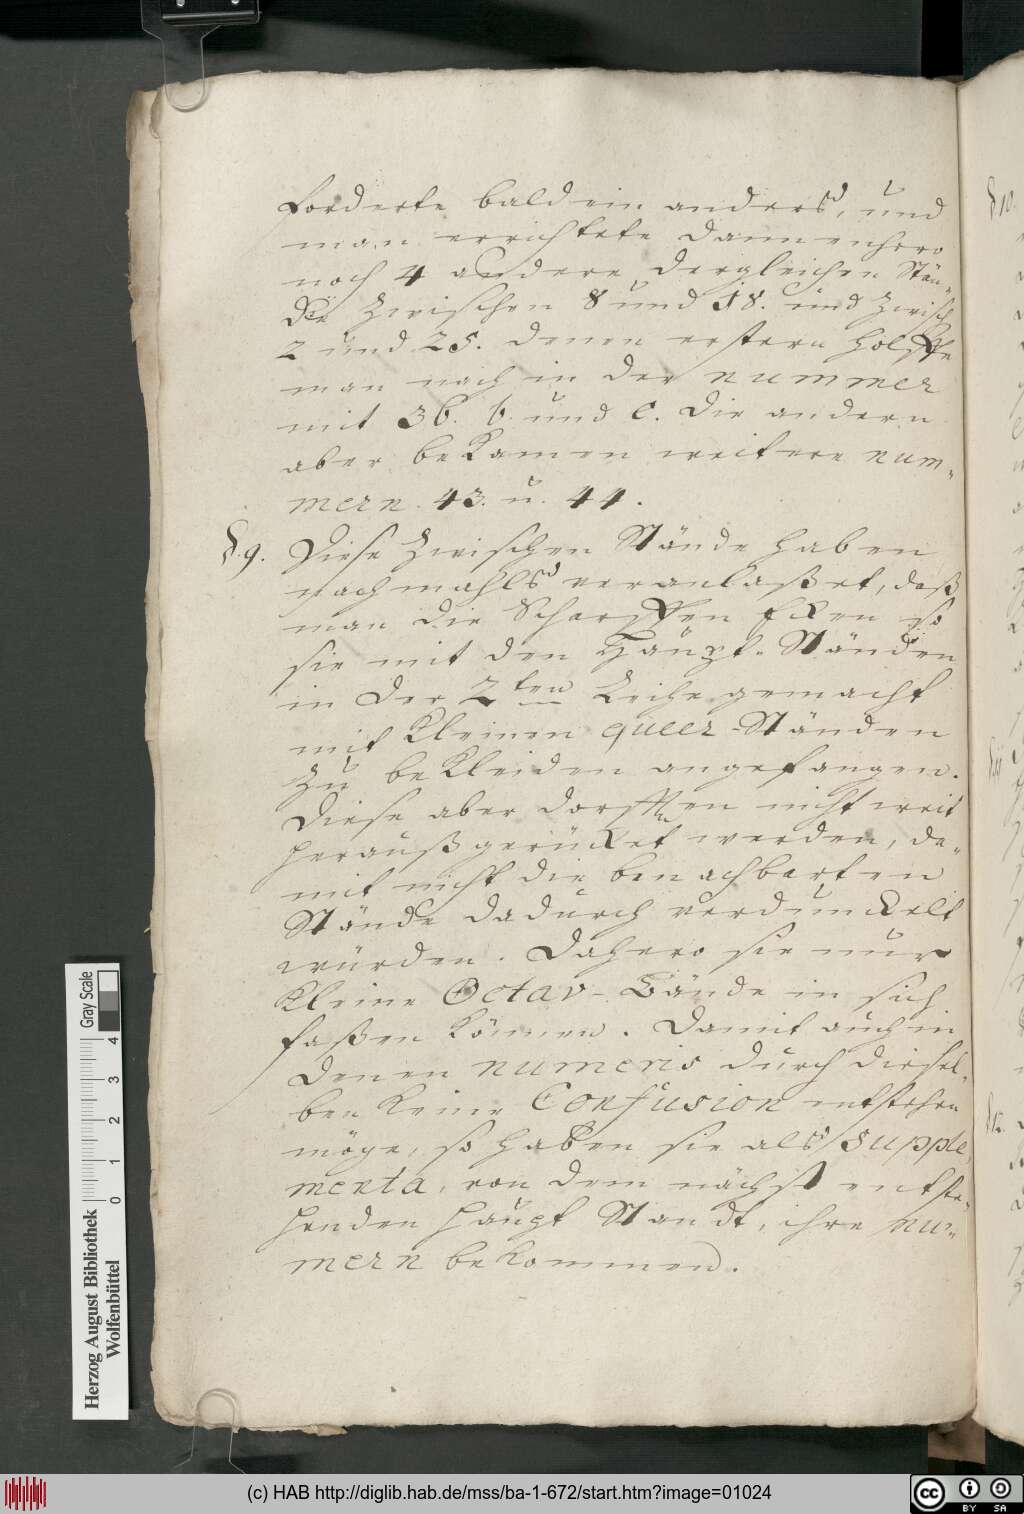 forderte bald ein anders, und
man errichtete dannenhero
noch 4 andere dergleichen Stän-
de Zwischen 8 und 18. und Zwisch
2 und 25. denen erstern holffe
man noch in der nummer
mit 36. b. und c. die andern
aber bekamen weitere num-
mern. 43. u. 44.
§. 9. Diese Zwischen Stände haben
nachmahls veranlaßet, daß
man die Scharffen Ecken so
sie mit den Häupt-Ständen
in der 2ten Reihe gemacht
mit kleinen queer-Ständen
zu bekleiden angefangen.
Diese aber dorfften nicht weit
herauß gerücket werden, da-
mit nicht die benachbarten
Stände dadurch verdunckelt
würden. Dahero sie nur
kleine Octav-Bände in sich
faßen können. Damit auch in
denen numeris durch diesel-
ben keine Confusion entstehen
möge, so haben sie als Supple-
menta, von dem nächst entste-
henden Haupt Standt, ihre nu-
mern bekommen.
§ 10.
§ 11
§ 12.
Herzog August Bibliothek
Wolfenbüttel
0 1 2 3 4
Gray Scale
(c) HAB http://diglib.hab.de/mss/ba-1-672/start.htm?image=01024
cc BY SA